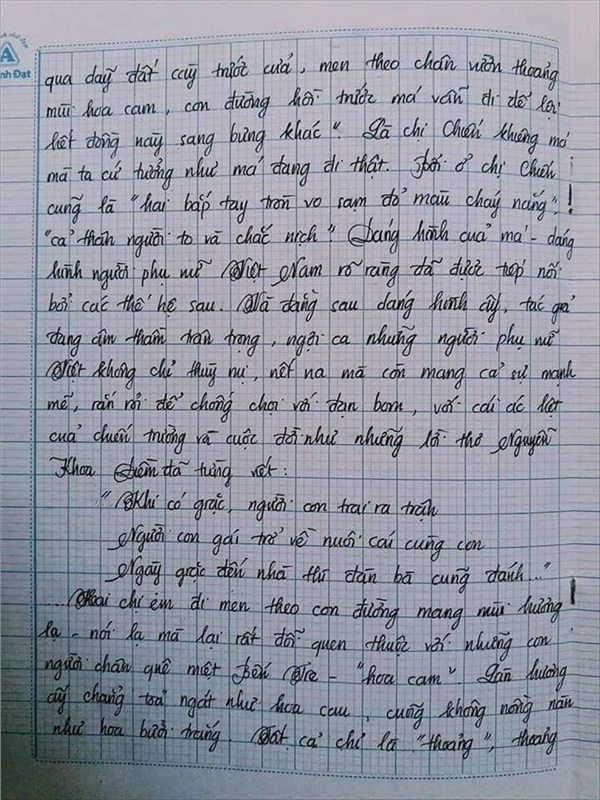 qua dãy đất cày trước cửa, men theo chân vườn thoảng
mùi hoa cam, con đường hồi trước má vẫn đi để lội
hết đồng này sang bưng khác". Là chị Chiến khiêng má
mà ta cứ tưởng như má đang đi thật. Bởi ở chị Chiến
cũng là "hai bắp tay tròn vo sạm đỏ màu cháy nắng",
"cả thân người to và chắc nịch". Dáng hình của má - dáng
hình người phụ nữ Việt Nam rõ ràng đã được tiếp nối
bởi các thế hệ sau. Và đằng sau dáng hình ấy, tác giả
đang âm thầm trân trọng, ngợi ca những người phụ nữ
Việt không chỉ thùy mị, nết na mà còn mang cả sự mạnh
mẽ, rắn rỏi để chống chọi với đạn bom, với cái ác liệt
của chiến trường và cuộc đời như những lời thơ Nguyễn
Khoa Điềm đã từng viết:
"Khi có giặc, người con trai ra trận
Người con gái trở về nuôi cái cùng con
Ngày giặc đến nhà thì đàn bà cũng đánh..."
Hai chị em đi men theo con đường mang mùi hương
lạ - nói lạ mà lại rất đỗi quen thuộc với những con
người chân quê miệt Bến Tre - "hoa cam". Làn hương
ấy chẳng toả ngát như hoa cau, cũng không nồng nàn
như hoa bưởi trắng. Tất cả chỉ là "thoảng", thoảng